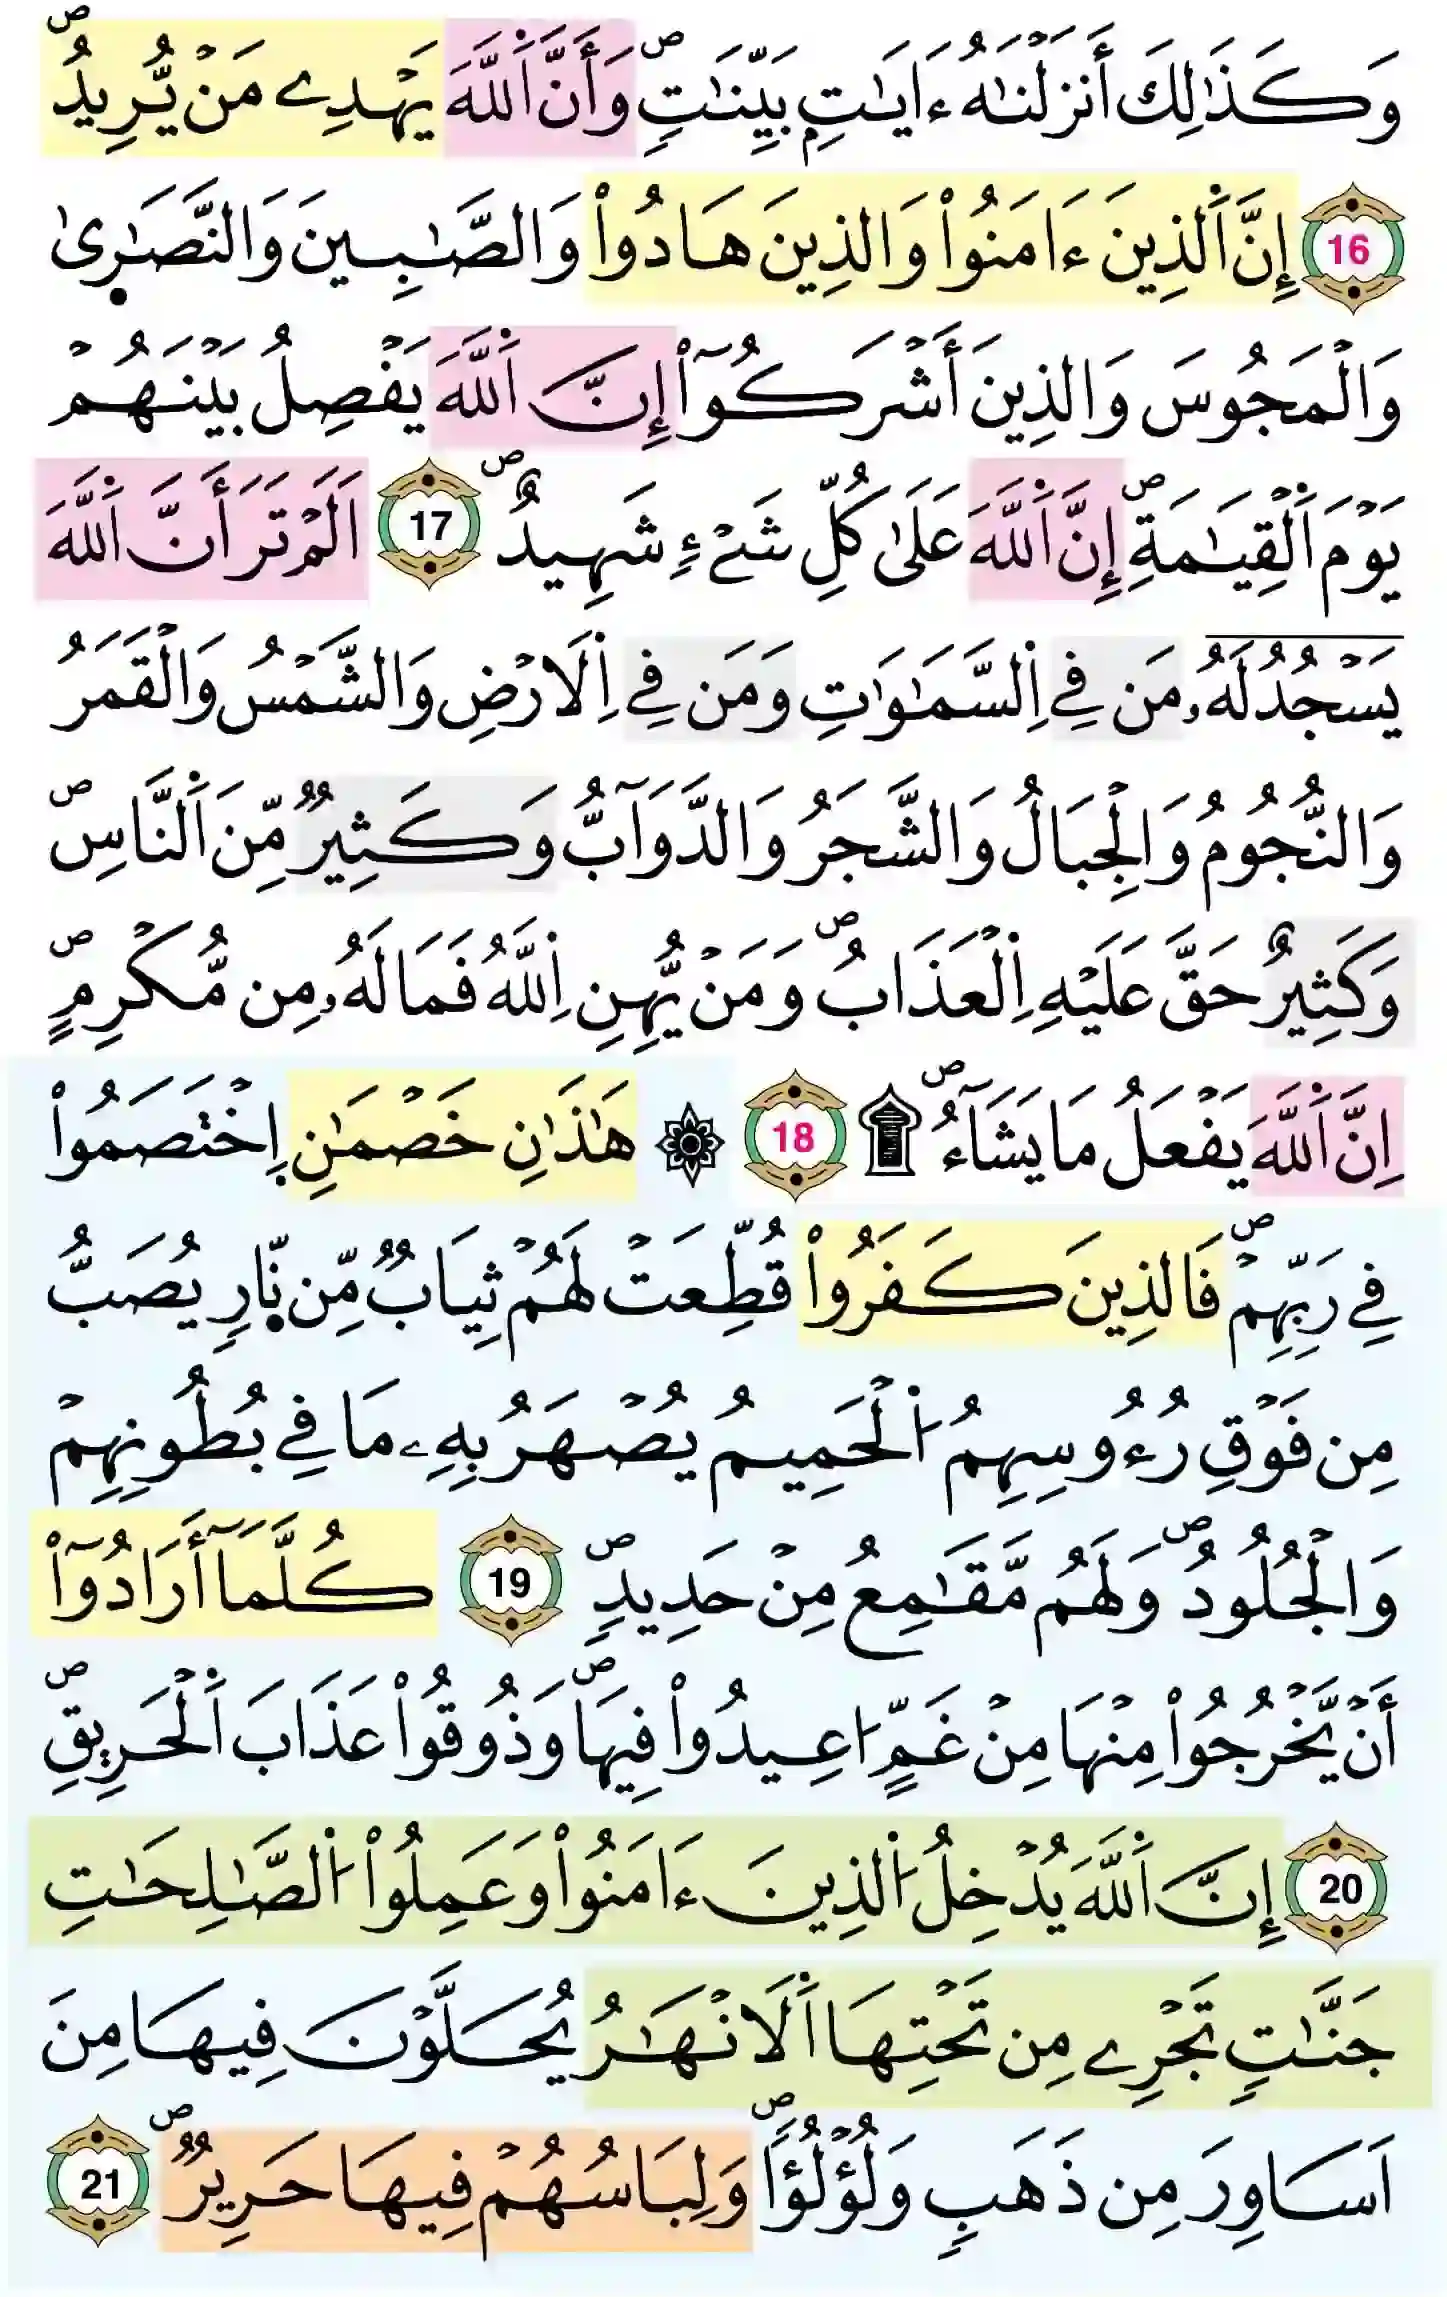 وَكَذَٰلِكَ أَنزَلْنَٰهُ ءَايَٰتِۭ بَيِّنَٰتٖۖ وَأَنَّ اَ۬للَّهَ يَهْدِے مَنْ يُّرِيدُۖ
16 إِنَّ اَ۬لذِينَ ءَامَنُواْ وَالذِينَ هَادُواْ وَالصَّٰبِينَ وَالنَّصَٰرٜىٰ
وَالْمَجُوسَ وَالذِينَ أَشْرَكُوٓاْ إِنَّ اَ۬للَّهَ يَفْصِلُ بَيْنَهُمْ
يَوْمَ اَ۬لْقِيَٰمَةِۖ إِنَّ اَ۬للَّهَ عَلَىٰ كُلِّ شَےْءٖ شَهِيدٌۖ 17 اَلَمْ تَرَ أَنَّ اَ۬للَّهَ
يَسْجُدُ لَهُۥ مَن فِے اِ۬لسَّمَٰوَٰتِ وَمَن فِے اِ۬لَارْضِ وَالشَّمْسُ وَالْقَمَرُ
وَالنُّجُومُ وَالْجِبَالُ وَالشَّجَرُ وَالدَّوَآبُّ وَكَثِيرٞ مِّنَ اَ۬لنَّاسِۖ
وَكَثِيرٌ حَقَّ عَلَيْهِ اِ۬لْعَذَابُۖ وَمَنْ يُّهِنِ اِ۬للَّهُ فَمَا لَهُۥ مِن مُّكْرِمٍۖ
اِنَّ اَ۬للَّهَ يَفْعَلُ مَا يَشَآءُۖ ۩ 18 ۞ هَٰذَٰنِ خَصْمَٰنِ اِ۪خْتَصَمُواْ
فِے رَبِّهِمْۖ فَالذِينَ كَفَرُواْ قُطِّعَتْ لَهُمْ ثِيَابٞ مِّن نّ۪ارٖ يُصَبُّ
مِن فَوْقِ رُءُوسِهِمُ اُ۬لْحَمِيمُ يُصْهَرُ بِهِۦ مَا فِے بُطُونِهِمْ
وَالْجُلُودُۖ وَلَهُم مَّقَٰمِعُ مِنْ حَدِيدٖۖ 19 كُلَّمَآ أَرَادُوٓاْ
أَنْ يَّخْرُجُواْ مِنْهَا مِنْ غَمٍّ ا۟عِيدُواْ فِيهَاۖ وَذُوقُواْ عَذَابَ اَ۬لْحَرِيقِۖ
20 إِنَّ اَ۬للَّهَ يُدْخِلُ اُ۬لذِينَ ءَامَنُواْ وَعَمِلُواْ اُ۬لصَّٰلِحَٰتِ
جَنَّٰتٖ تَجْرِے مِن تَحْتِهَا اَ۬لَانْهَٰرُ يُحَلَّوْنَ فِيهَا مِنَ
اَسَاوِرَ مِن ذَهَبٖ وَلُؤْلُؤاٗۖ وَلِبَاسُهُمْ فِيهَا حَرِيرٞۖ 21